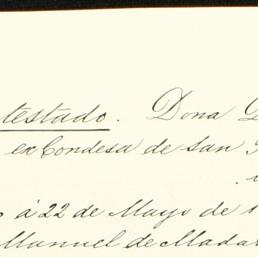 testado. Dona D
ex Condesa de San
á 22 de Mayo de 1
Manuel de Madar